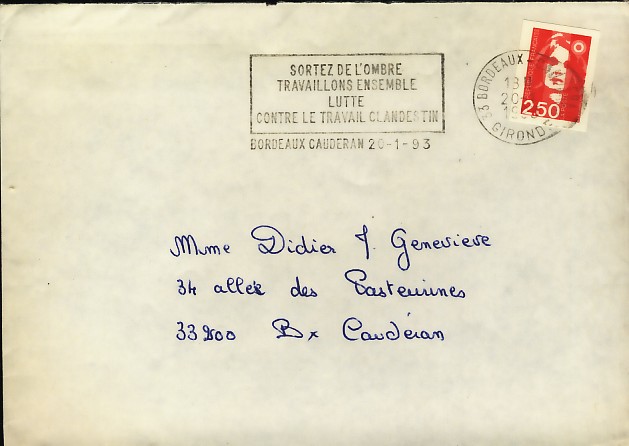 SORTEZ DE L'OMBRE
TRAVAILLONS ENSEMBLE
LUTTE
CONTRE LE TRAVAIL CLANDESTIN
BORDEAUX CAUDERAN 20-1-93
33 BORDEAUX
18
20
19
GIRONDE
2,50
Mme Didier J. Genevieve
34 allée des Pasteurines
33200 Bx Caudéran